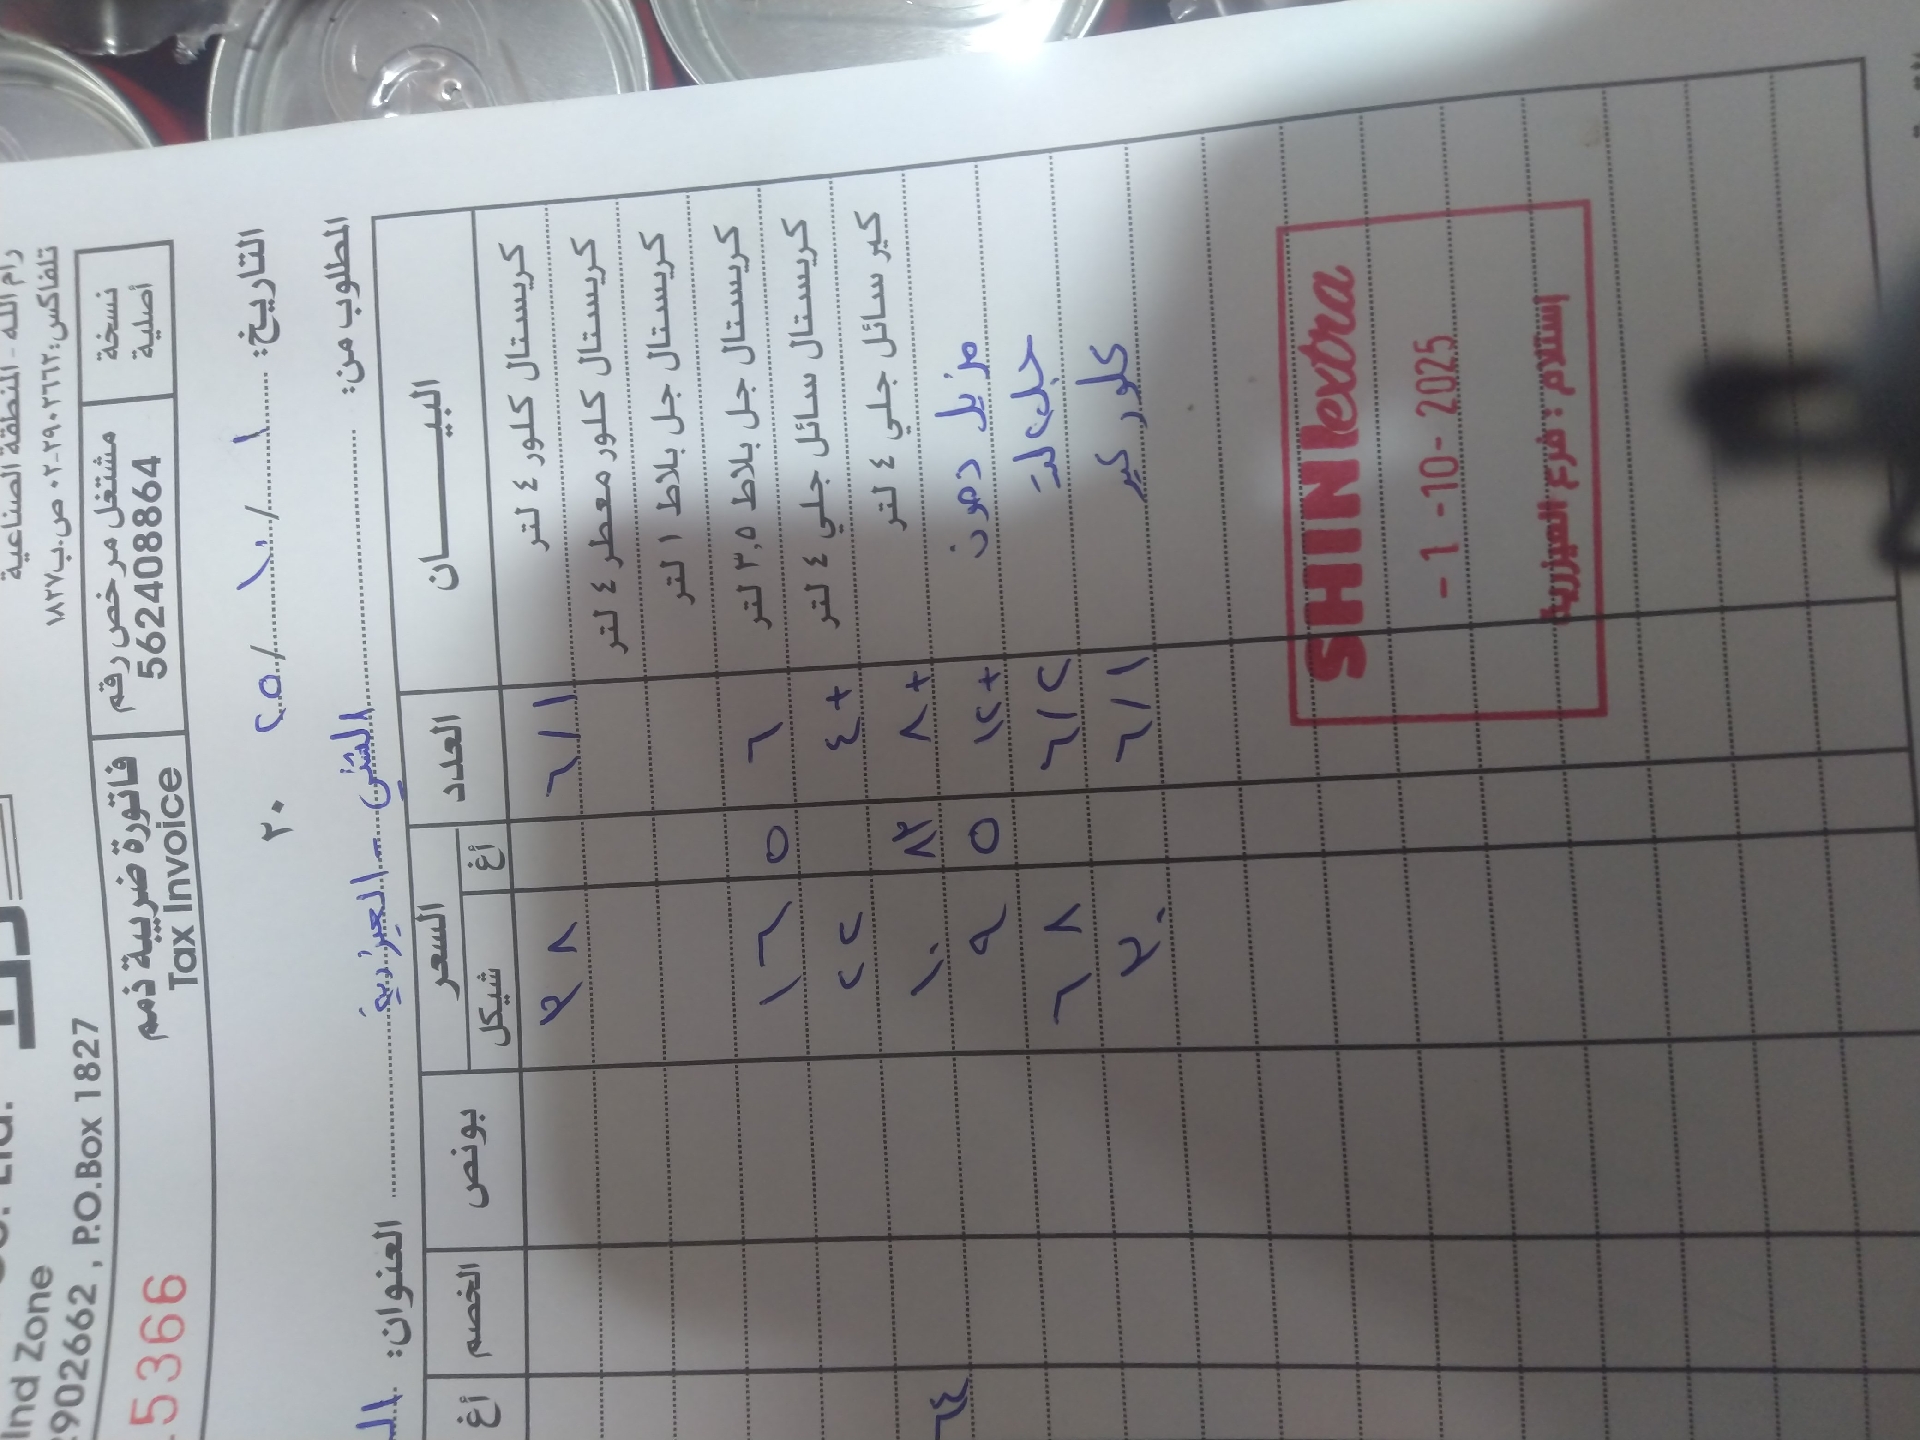 رام الله - المنطقة الصناعية
تلفاكس: ٢٩٠٢٦٦٢-٠٢ ص.ب ١٨٢٧
Ind Zone
2902662 , P.O.Box 1827
نسخة أصلية
مشتغل مرخص رقم
562408864
فاتورة ضريبية ذمم
Tax Invoice
15366
التاريخ: ١ / ١٠ / ٢٠٢٥
المطلوب من: الشني - العيزرية
العنوان:
البيـــــان العدد السعر بونص الخصم
شيكل أغ أغ
كريستال كلور ٤ لتر ٦/١ ٣٨
كريستال كلور معطر ٤ لتر
كريستال جل بلاط ١ لتر
كريستال جل بلاط ٣,٥ لتر ٦ ١٦ ٥
كريستال سائل جلي ٤ لتر ٤+ ٢٢
كير سائل جلي ٤ لتر ٨+ ١٠ ٨٣
مزيل دهون ١٢+ ٩ ٥ ٦٤
٦/٢ ٦٨
كلور كير ٦/١ ٣٠
SHINI extra
- 1 -10- 2025
إستلام : فرع العيزرية